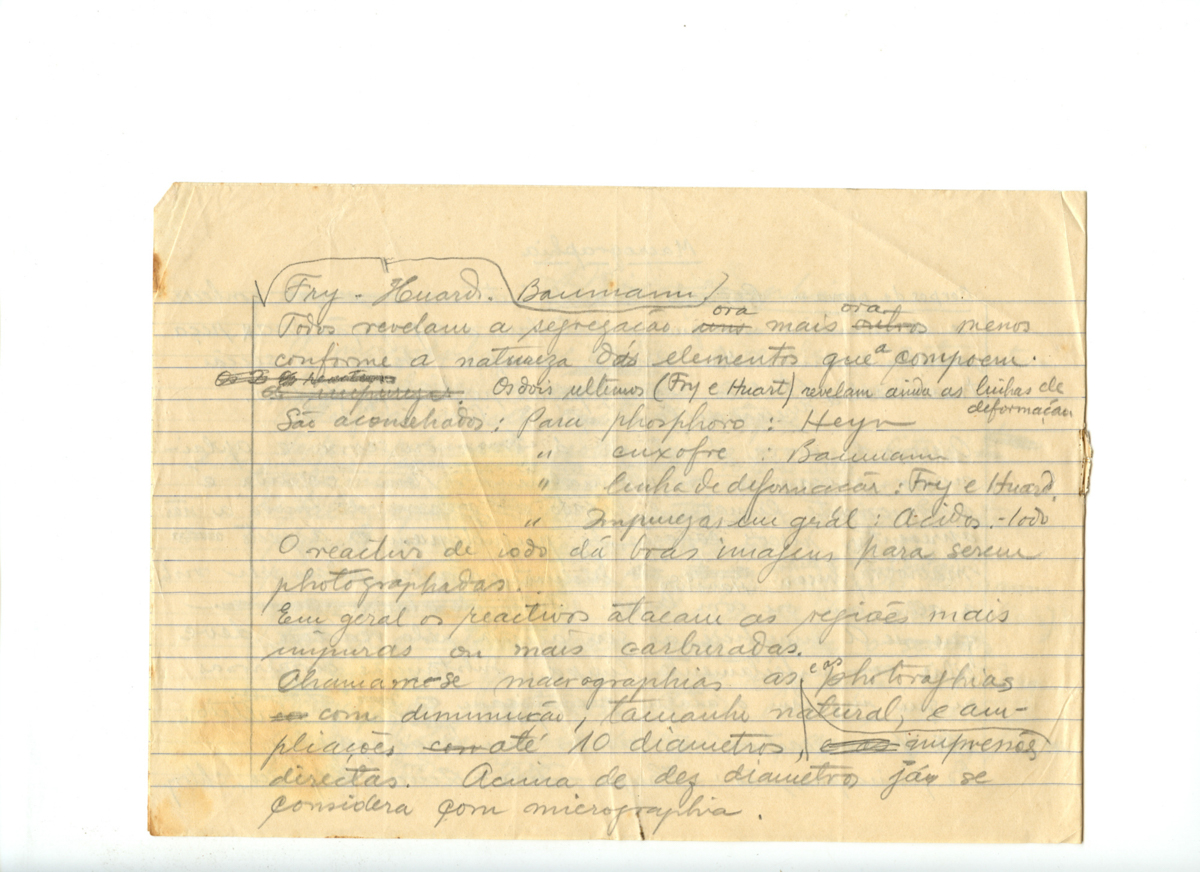 Fry - Huard. Baumann
Todos revelam a segregação uns ora mais outros ora menos
conforme a natureza dos elementos que a compoem.
Os 2 reactivos
as impurezas. Os dois ultimos (Fry e Huart) revelam ainda as linhas de
deformação
São aconselhados: Para phosphoro : Heyn
" enxofre : Baumann
" linha de deformação : Fry e Huard.
" Impurezas em gerál : Acidos. - Iodo
O reactivo de iodo dá boas imagens para serem
photographadas.
Em geral os reactivos atacam as regiões mais
impuras ou mais carburadas.
Chamam-se macrographias as e as photoraphias
com diminuição, tamanho natural, e am-
pliações com até 10 diametros, e as impressões
directas. Acima de dez diametros já se
considera com micrographia.